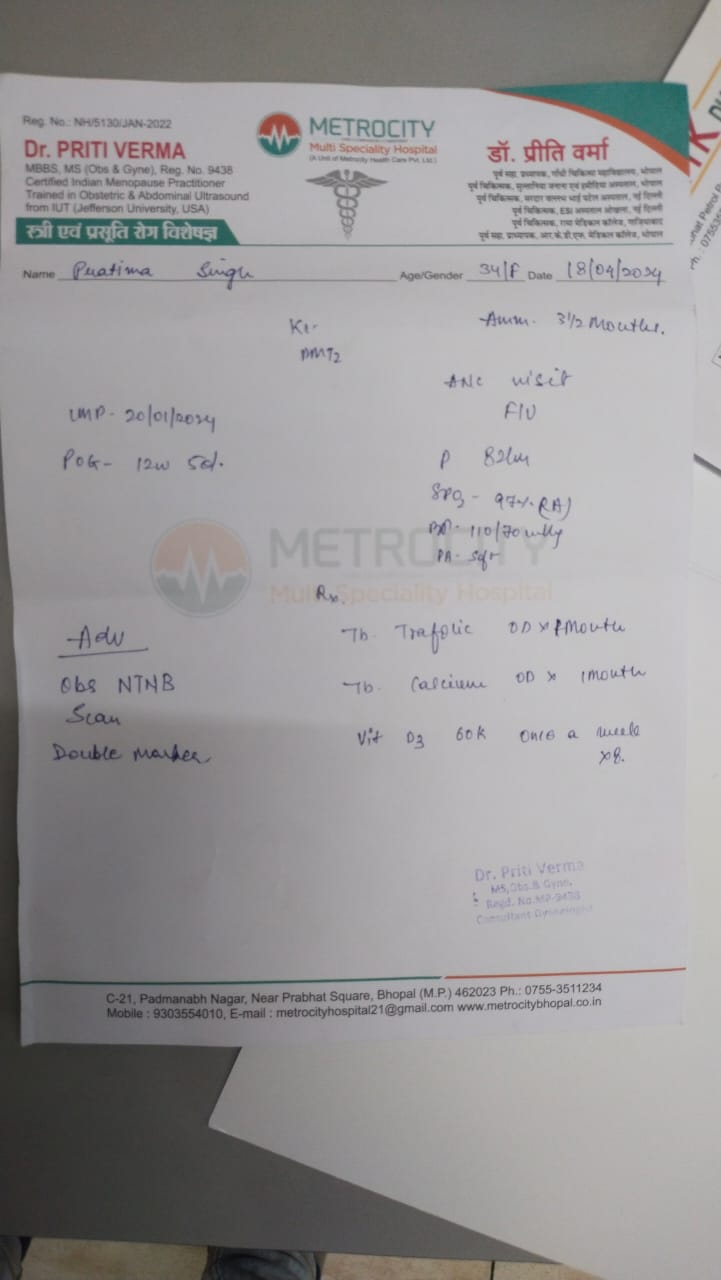 Reg. No.: NH/5130/JAN-2022
Dr. PRITI VERMA
MBBS, MS (Obs & Gyne), Reg. No. 9438
Certified Indian Menopause Practitioner
Trained in Obstetric & Abdominal Ultrasound
from IUT (Jefferson University, USA)
स्त्री एवं प्रसूति रोग विशेषज्ञ
METROCITY
Multi Speciality Hospital
(A Unit of Metrocity Health Care Pvt. Ltd.)
डॉ. प्रीति वर्मा
पूर्व सह. प्राध्यापक, गाँधी चिकित्सा महाविद्यालय, भोपाल
पूर्व चिकित्सक, सुल्तानिया जनाना एवं हमीदिया अस्पताल, भोपाल
पूर्व चिकित्सक, सरदार वल्लभ भाई पटेल अस्पताल, नई दिल्ली
पूर्व चिकित्सक, ESI अस्पताल ओखला, नई दिल्ली
पूर्व चिकित्सक, राणा मेडिकल कॉलेज, गाजियाबाद
पूर्व सह. प्राध्यापक, आर.के.डी.एफ. मेडिकल कॉलेज, भोपाल
Name Pratima Singh Age/Gender 34/F Date 18/04/2024
Amm. 3 1/2 Months.
ANC visit
LMP- 20/01/2024
F/U
POG- 12w 5d.
P 82/m
SPO2 - 97% (RA)
BP- 110/70 mmHg
METROCITY
PA- Soft
Multi Speciality Hospital
Rx.
Adv
Tb. Trafolic OD x 1 Month
Obs NTNB
Tb. OD x 1 Month
Scan
Vit D3 60K once a week
x8.
Double Marker
Dr. Priti Verma
MS,Obs.& Gyne.
Regd. No.MP-9438
Consultant
C-21, Padmanabh Nagar, Near Prabhat Square, Bhopal (M.P.) 462023 Ph.: 0755-3511234
Mobile : 9303554010, E-mail : metrocityhospital21@gmail.com www.metrocitybhopal.co.in